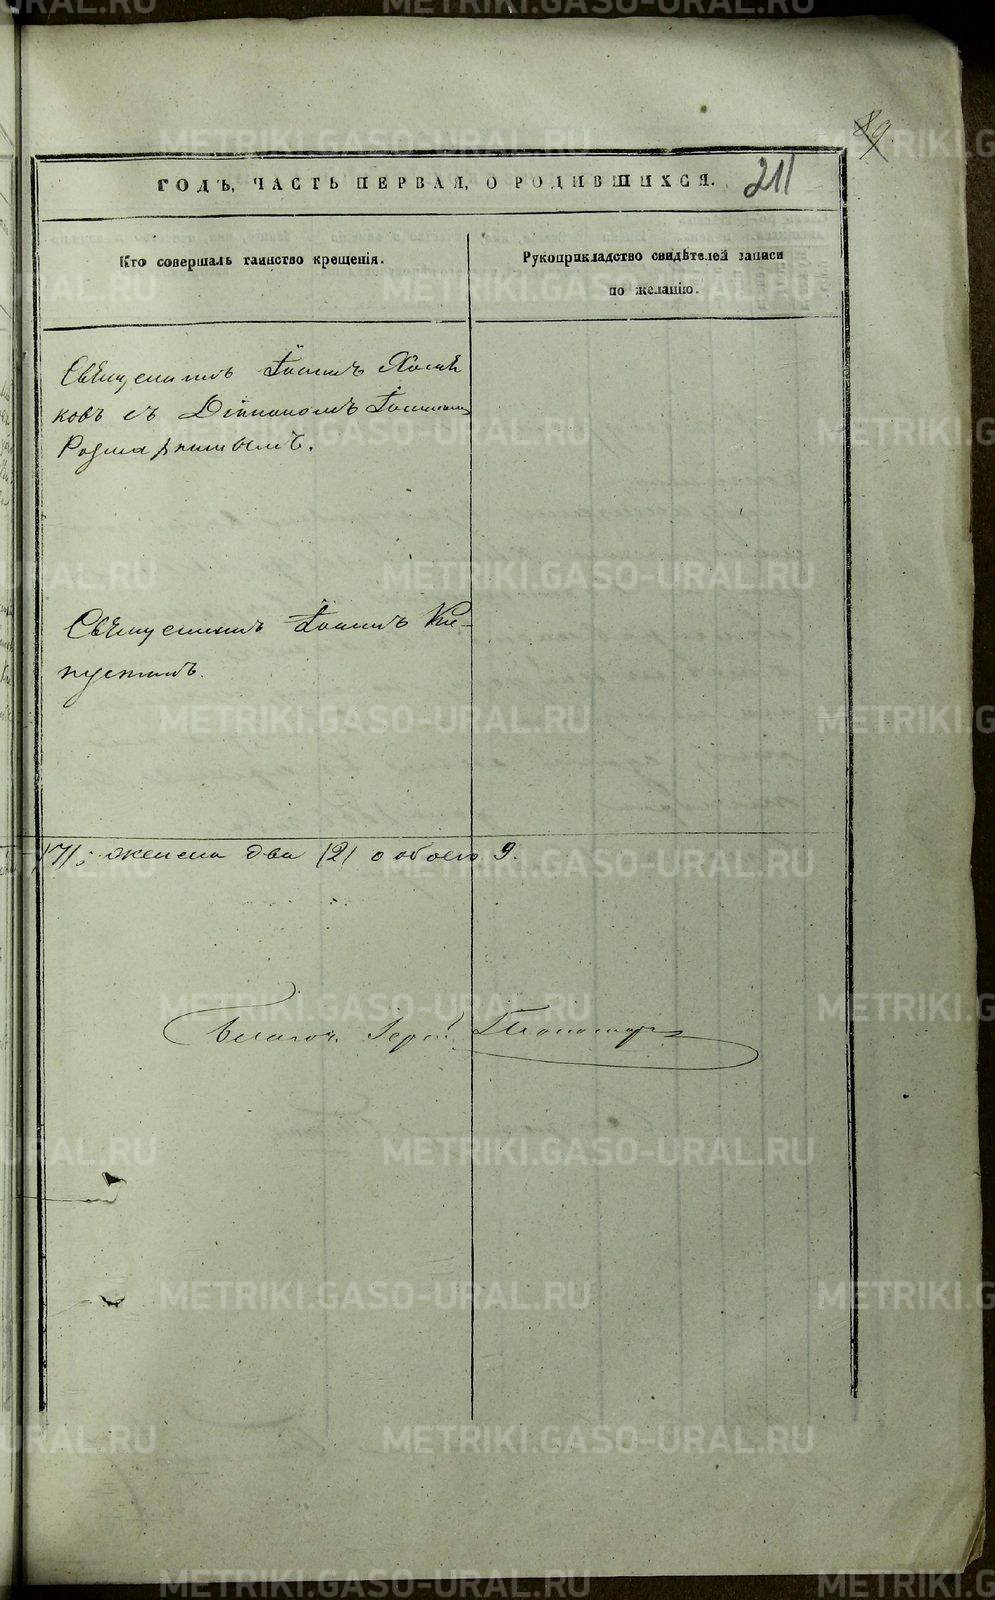 89
ГОДЪ, ЧАСТЬ ПЕРВАЯ, О РОДИВШИХСЯ. 211
Кто совершалъ таинство крещенія.
Рукоприкладство свидѣтелей записи
по желанію.
Священникъ Іоаннъ
ковъ съ Діакономъ Іоанномъ
Священникъ Іоаннъ Ка-
пустинъ.
/7/; женска два /2/ а обоего 9.
Благоч. Іерей
METRIKI.GASO-URAL.RU